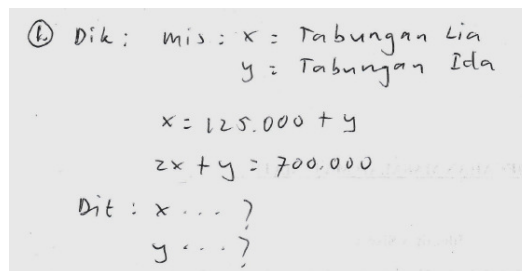 1. Dik : mis : x = Tabungan Lia
y = Tabungan Ida
x = 125.000 + y
2x + y = 700.000
Dit : x ... ?
y ... ?